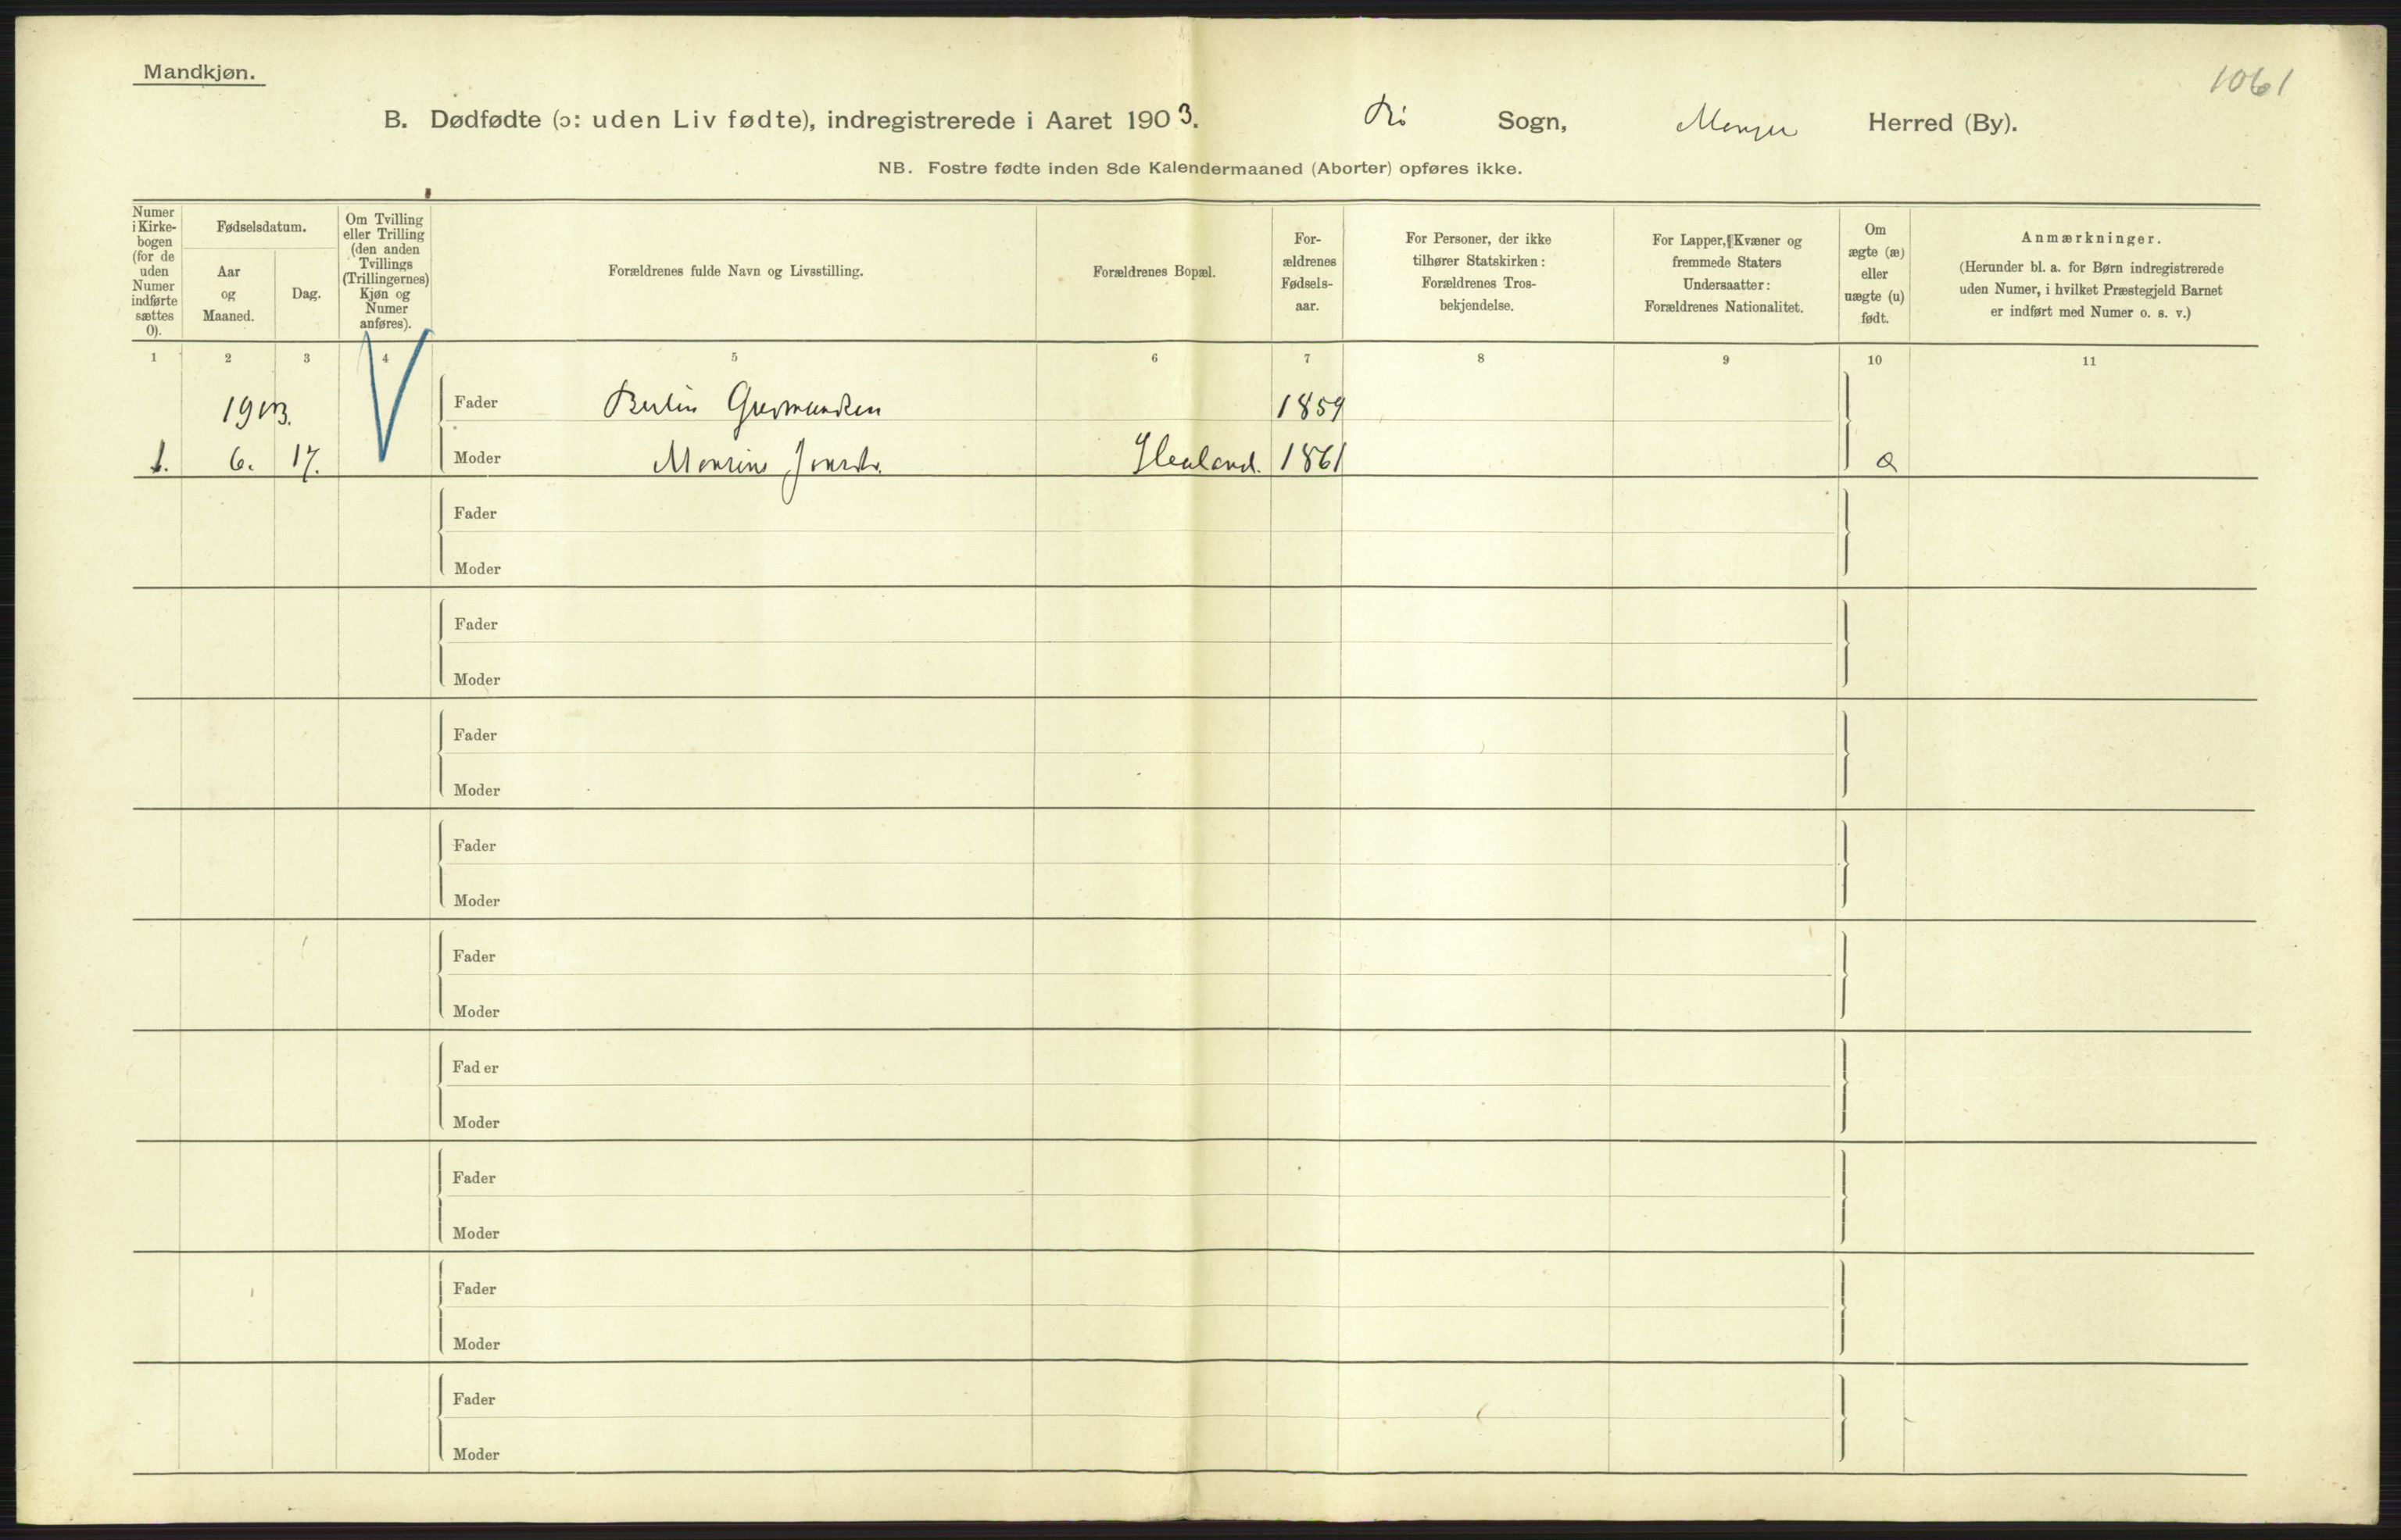 Mandkjøn.
1061
B. Dødfødte (ɔ: uden Liv fødte), indregistrerede i Aaret 1903. Bø Sogn, Manger Herred (By).
NB. Fostre fødte inden 8de Kalendermaaned (Aborter) opføres ikke.
Numer
i Kirke-
bogen
(for de
uden
Numer
indførte
sættes
0).
Fødselsdatum.
Aar
og
Maaned.
Dag.
Om Tvilling
eller Trilling
(den anden
Tvillings
(Trillingernes)
Kjøn og
Numer
anføres).
Forældrenes fulde Navn og Livsstilling.
Forældrenes Bopæl.
For-
ældrenes
Fødsels-
aar.
For Personer, der ikke
tilhører Statskirken:
Forældrenes Tros-
bekjendelse.
For Lapper, Kvæner og
fremmede Staters
Undersaatter:
Forældrenes Nationalitet.
Om
ægte (æ)
eller
uægte (u)
født.
Anmærkninger.
(Herunder bl. a. for Børn indregistrerede
uden Numer, i hvilket Præstegjeld Barnet
er indført med Numer o. s. v.)
1 2 3 4 5 6 7 8 9 10 11
1903. Fader 1859
1. 6. 17. Moder 1861
Fader
Moder
Fader
Moder
Fader
Moder
Fader
Moder
Fader
Moder
Fader
Moder
Fader
Moder
Fader
Moder
Fader
Moder